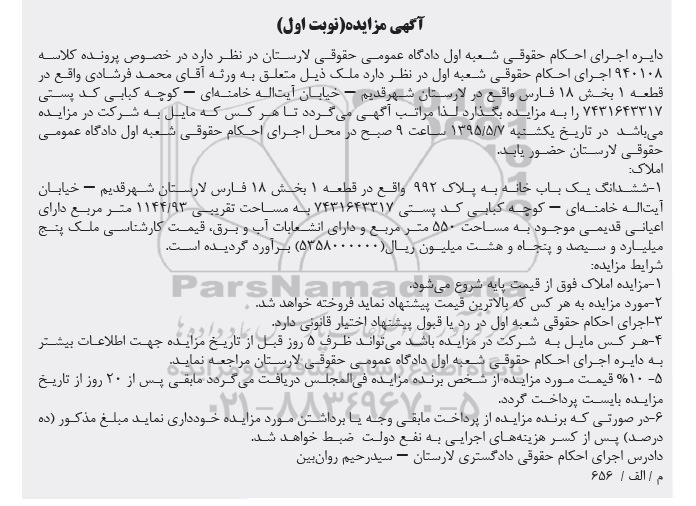 آگهی مزایده(نوبت اول)
دایره اجرای احکام حقوقی شعبه اول دادگاه عمومی حقوقی لارستان در نظر دارد در خصوص پرونده کلاسه
۹۴۰۱۰۸ اجرای احکام حقوقی شعبه اول در نظر دارد ملک ذیل متعلق به ورثه آقای محمد فرشادی واقع در
قطعه ۱ بخش ۱۸ فارس واقع در لارستان شهرقدیم – خیابان آیت‌اله خامنه‌ای – کوچه کبابی کد پستی
۷۴۳۱۶۴۳۳۱۷ را به مزایده بگذارد لذا مراتب آگهی می‌گردد تا هر کس که مایل به شرکت در مزایده
می‌باشد در تاریخ یکشنبه ۱۳۹۵/۵/۷ ساعت ۹ صبح در محل اجرای احکام حقوقی شعبه اول دادگاه عمومی
حقوقی لارستان حضور یابد.
املاک:
۱-ششدانگ یک باب خانه به پلاک ۹۹۲ واقع در قطعه ۱ بخش ۱۸ فارس لارستان شهرقدیم – خیابان
آیت‌اله خامنه‌ای – کوچه کبابی کد پستی ۷۴۳۱۶۴۳۳۱۷ به مساحت تقریبی ۱۱۴۴/۹۳ متر مربع دارای
اعیانی قدیمی موجود به مساحت ۵۵۰ متر مربع و دارای انشعابات آب و برق، قیمت کارشناسی ملک پنج
میلیارد و سیصد و پنجاه و هشت میلیون ریال(۵۳۵۸۰۰۰۰۰۰) برآورد گردیده است.
شرایط مزایده:
۱-مزایده املاک فوق از قیمت پایه شروع می‌شود.
۲-مورد مزایده به هر کس که بالاترین قیمت پیشنهاد نماید فروخته خواهد شد.
۳-اجرای احکام حقوقی شعبه اول در رد یا قبول پیشنهاد اختیار قانونی دارد.
۴-هر کس مایل به شرکت در مزایده باشد می‌تواند ظرف ۵ روز قبل از تاریخ مزایده جهت اطلاعات بیشتر
به دایره اجرای احکام حقوقی شعبه اول دادگاه عمومی حقوقی لارستان مراجعه نماید.
۵- ۱۰% قیمت مورد مزایده از شخص برنده مزایده فی‌المجلس دریافت می‌گردد مابقی پس از ۲۰ روز از تاریخ
مزایده بایست پرداخت گردد.
۶-در صورتی که برنده مزایده از پرداخت مابقی وجه یا برداشتن مورد مزایده خودداری نماید مبلغ مذکور (ده
درصد) پس از کسر هزینه‌های اجرایی به نفع دولت ضبط خواهد شد.
دادرس اجرای احکام حقوقی دادگستری لارستان – سیدرحیم روان‌بین
م / الف / ۶۵۶
ParsNamadData
۰۲۱-۸۸۳۴۹۶۷۰-۵